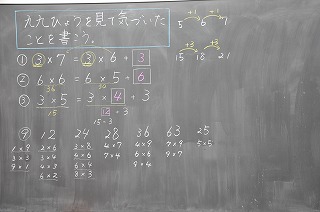 九九ひょうを見て気づいた
ことを書こう。
+1 +1
5 6 7
+3 +3
15 18 21
① 3×7=3×6+3
② 6×6=6×5+6
36 30
③ 3×5=3×4+3
15 12+3
15=3
9 12 24 28 36 63 25
1×9 2×6 3×8 4×7 4×9 7×9 5×5
3×3 3×4 4×6 7×4 6×6 9×7
9×1 4×3 6×4 9×4
6×2 8×3